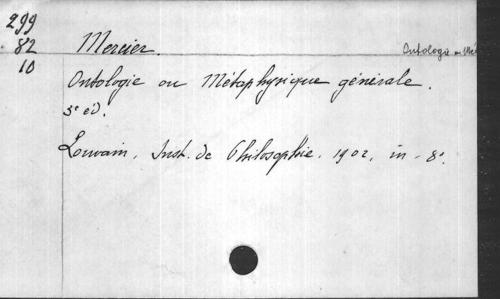 299
82
10
Mercier.
Ontologie ou Mét
Ontologie ou Métaphysique générale.
3e éd.
Louvain, Inst. de Philosophie, 1902, in-8°.